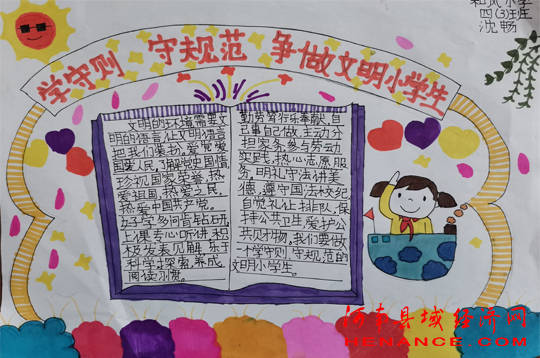 和风小学
四(3)班
沈畅
学守则 守规范 争做文明小学生
文明的环境需要文
明的语言,让文明语言
把我们美扮。爱党爱
国爱人民,了解党史国情,
珍视国家荣誉,热
爱祖国,热爱人民,
热爱中国共产党。
好学多问肯钻研,
上课专心听讲,积
极发表见解,乐于
科学探索,养成
阅读习惯。
勤劳笃行乐奉献,自
己事自己做,主动分
担家务,参与劳动
实践,热心志愿服
务,明礼守法讲美
德,遵守国法校纪,
自觉礼让排队,保
持公共卫生,爱护公
共财物。我们要做
一个学守则,守规范的
文明小学生。
河南县域经济网
HENANCE.COM